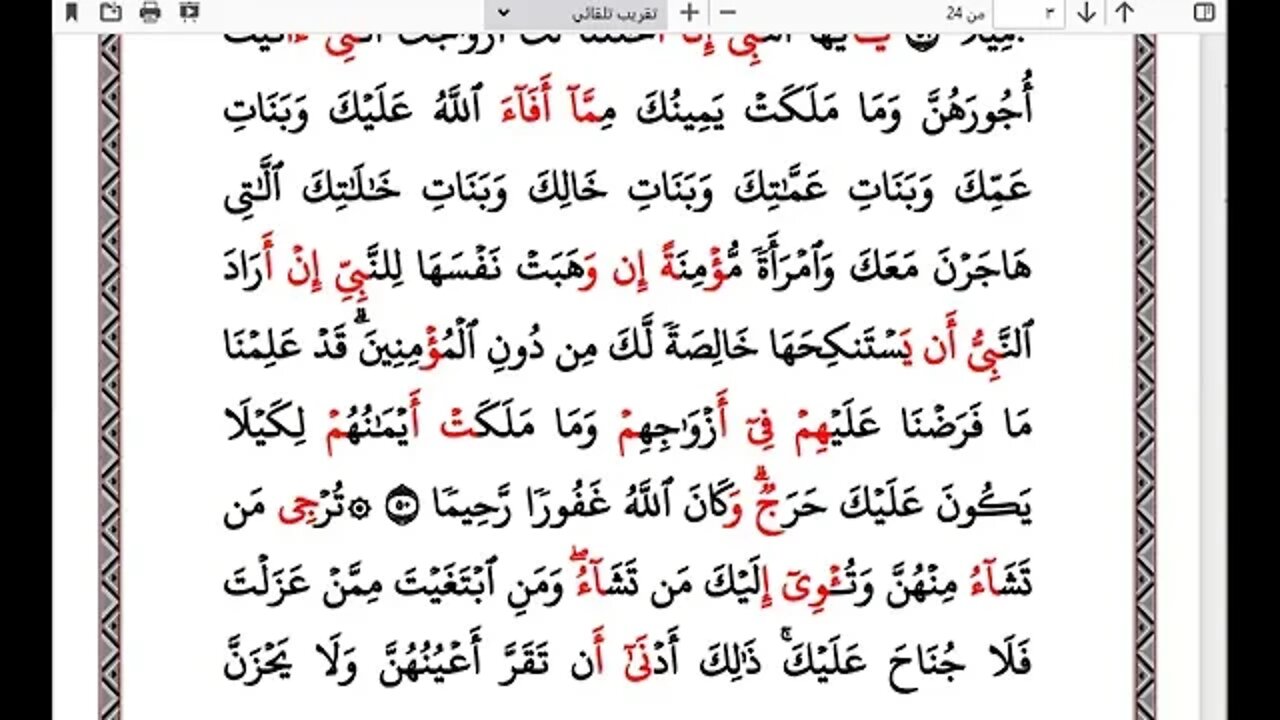 تقريب تلقائي
من 24
٣
أُجُورَهُنَّ وَمَا مَلَكَتۡ يَمِينُكَ مِمَّآ أَفَآءَ ٱللَّهُ عَلَيۡكَ وَبَنَاتِ
عَمِّكَ وَبَنَاتِ عَمَّٰتِكَ وَبَنَاتِ خَالِكَ وَبَنَاتِ خَٰلَٰتِكَ ٱلَّٰتِى
هَاجَرۡنَ مَعَكَ وَٱمۡرَأَةٗ مُّؤۡمِنَةً إِن وَهَبَتۡ نَفۡسَهَا لِلنَّبِيِّ إِنۡ أَرَادَ
ٱلنَّبِىُّ أَن يَسۡتَنكِحَهَا خَالِصَةٗ لَّكَ مِن دُونِ ٱلۡمُؤۡمِنِينَۗ قَدۡ عَلِمۡنَا
مَا فَرَضۡنَا عَلَيۡهِمۡ فِىٓ أَزۡوَٰجِهِمۡ وَمَا مَلَكَتۡ أَيۡمَٰنُهُمۡ لِكَيۡلَا
يَكُونَ عَلَيۡكَ حَرَجٞۗ وَكَانَ ٱللَّهُ غَفُورٗا رَّحِيمٗا ٥٠ ۞تُرۡجِى مَن
تَشَآءُ مِنۡهُنَّ وَتُـٔۡوِىٓ إِلَيۡكَ مَن تَشَآءُۖ وَمَنِ ٱبۡتَغَيۡتَ مِمَّنۡ عَزَلۡتَ
فَلَا جُنَاحَ عَلَيۡكَۚ ذَٰلِكَ أَدۡنَىٰٓ أَن تَقَرَّ أَعۡيُنُهُنَّ وَلَا يَحۡزَنَّ